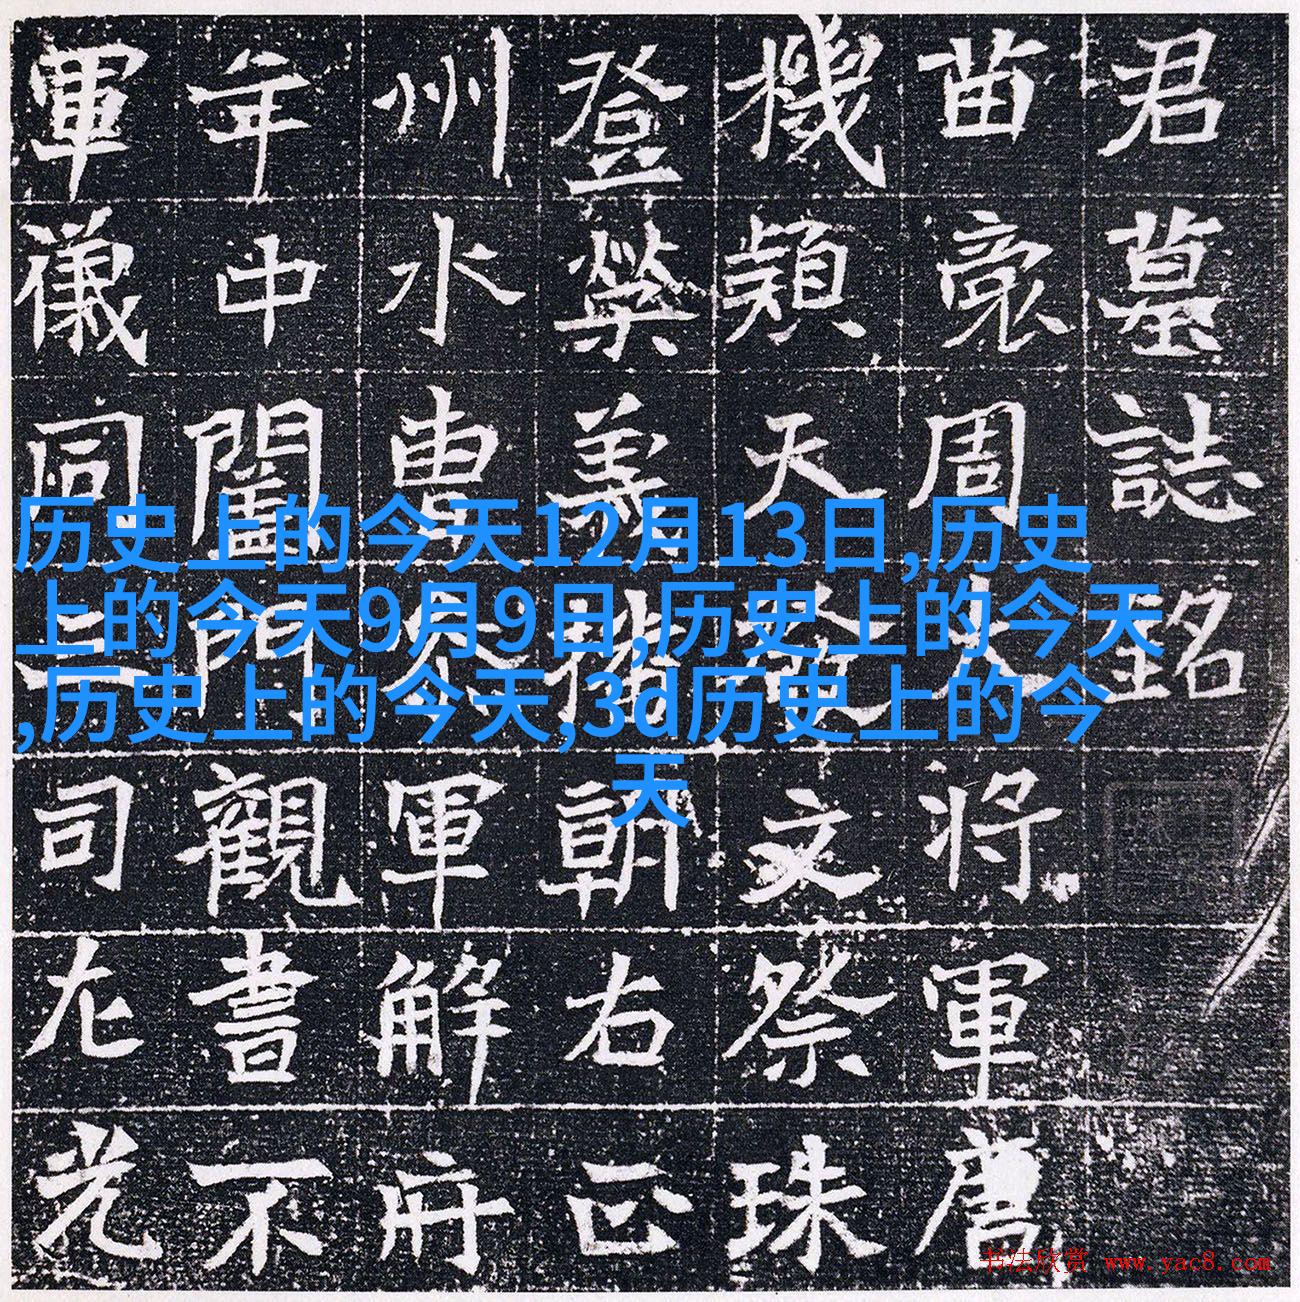 君墓誌銘
苗裔周大將軍唐
機穎天文祭珠
登榮美朝右正
州水曹軍解府
年中闔門觀書不
軍儀同三司左光
历史上的今天12月13日,历史
上的今天9月9日,历史上的今天
,历史上的今天,3d历史上的今
天
书法欣赏 www.yac8.com